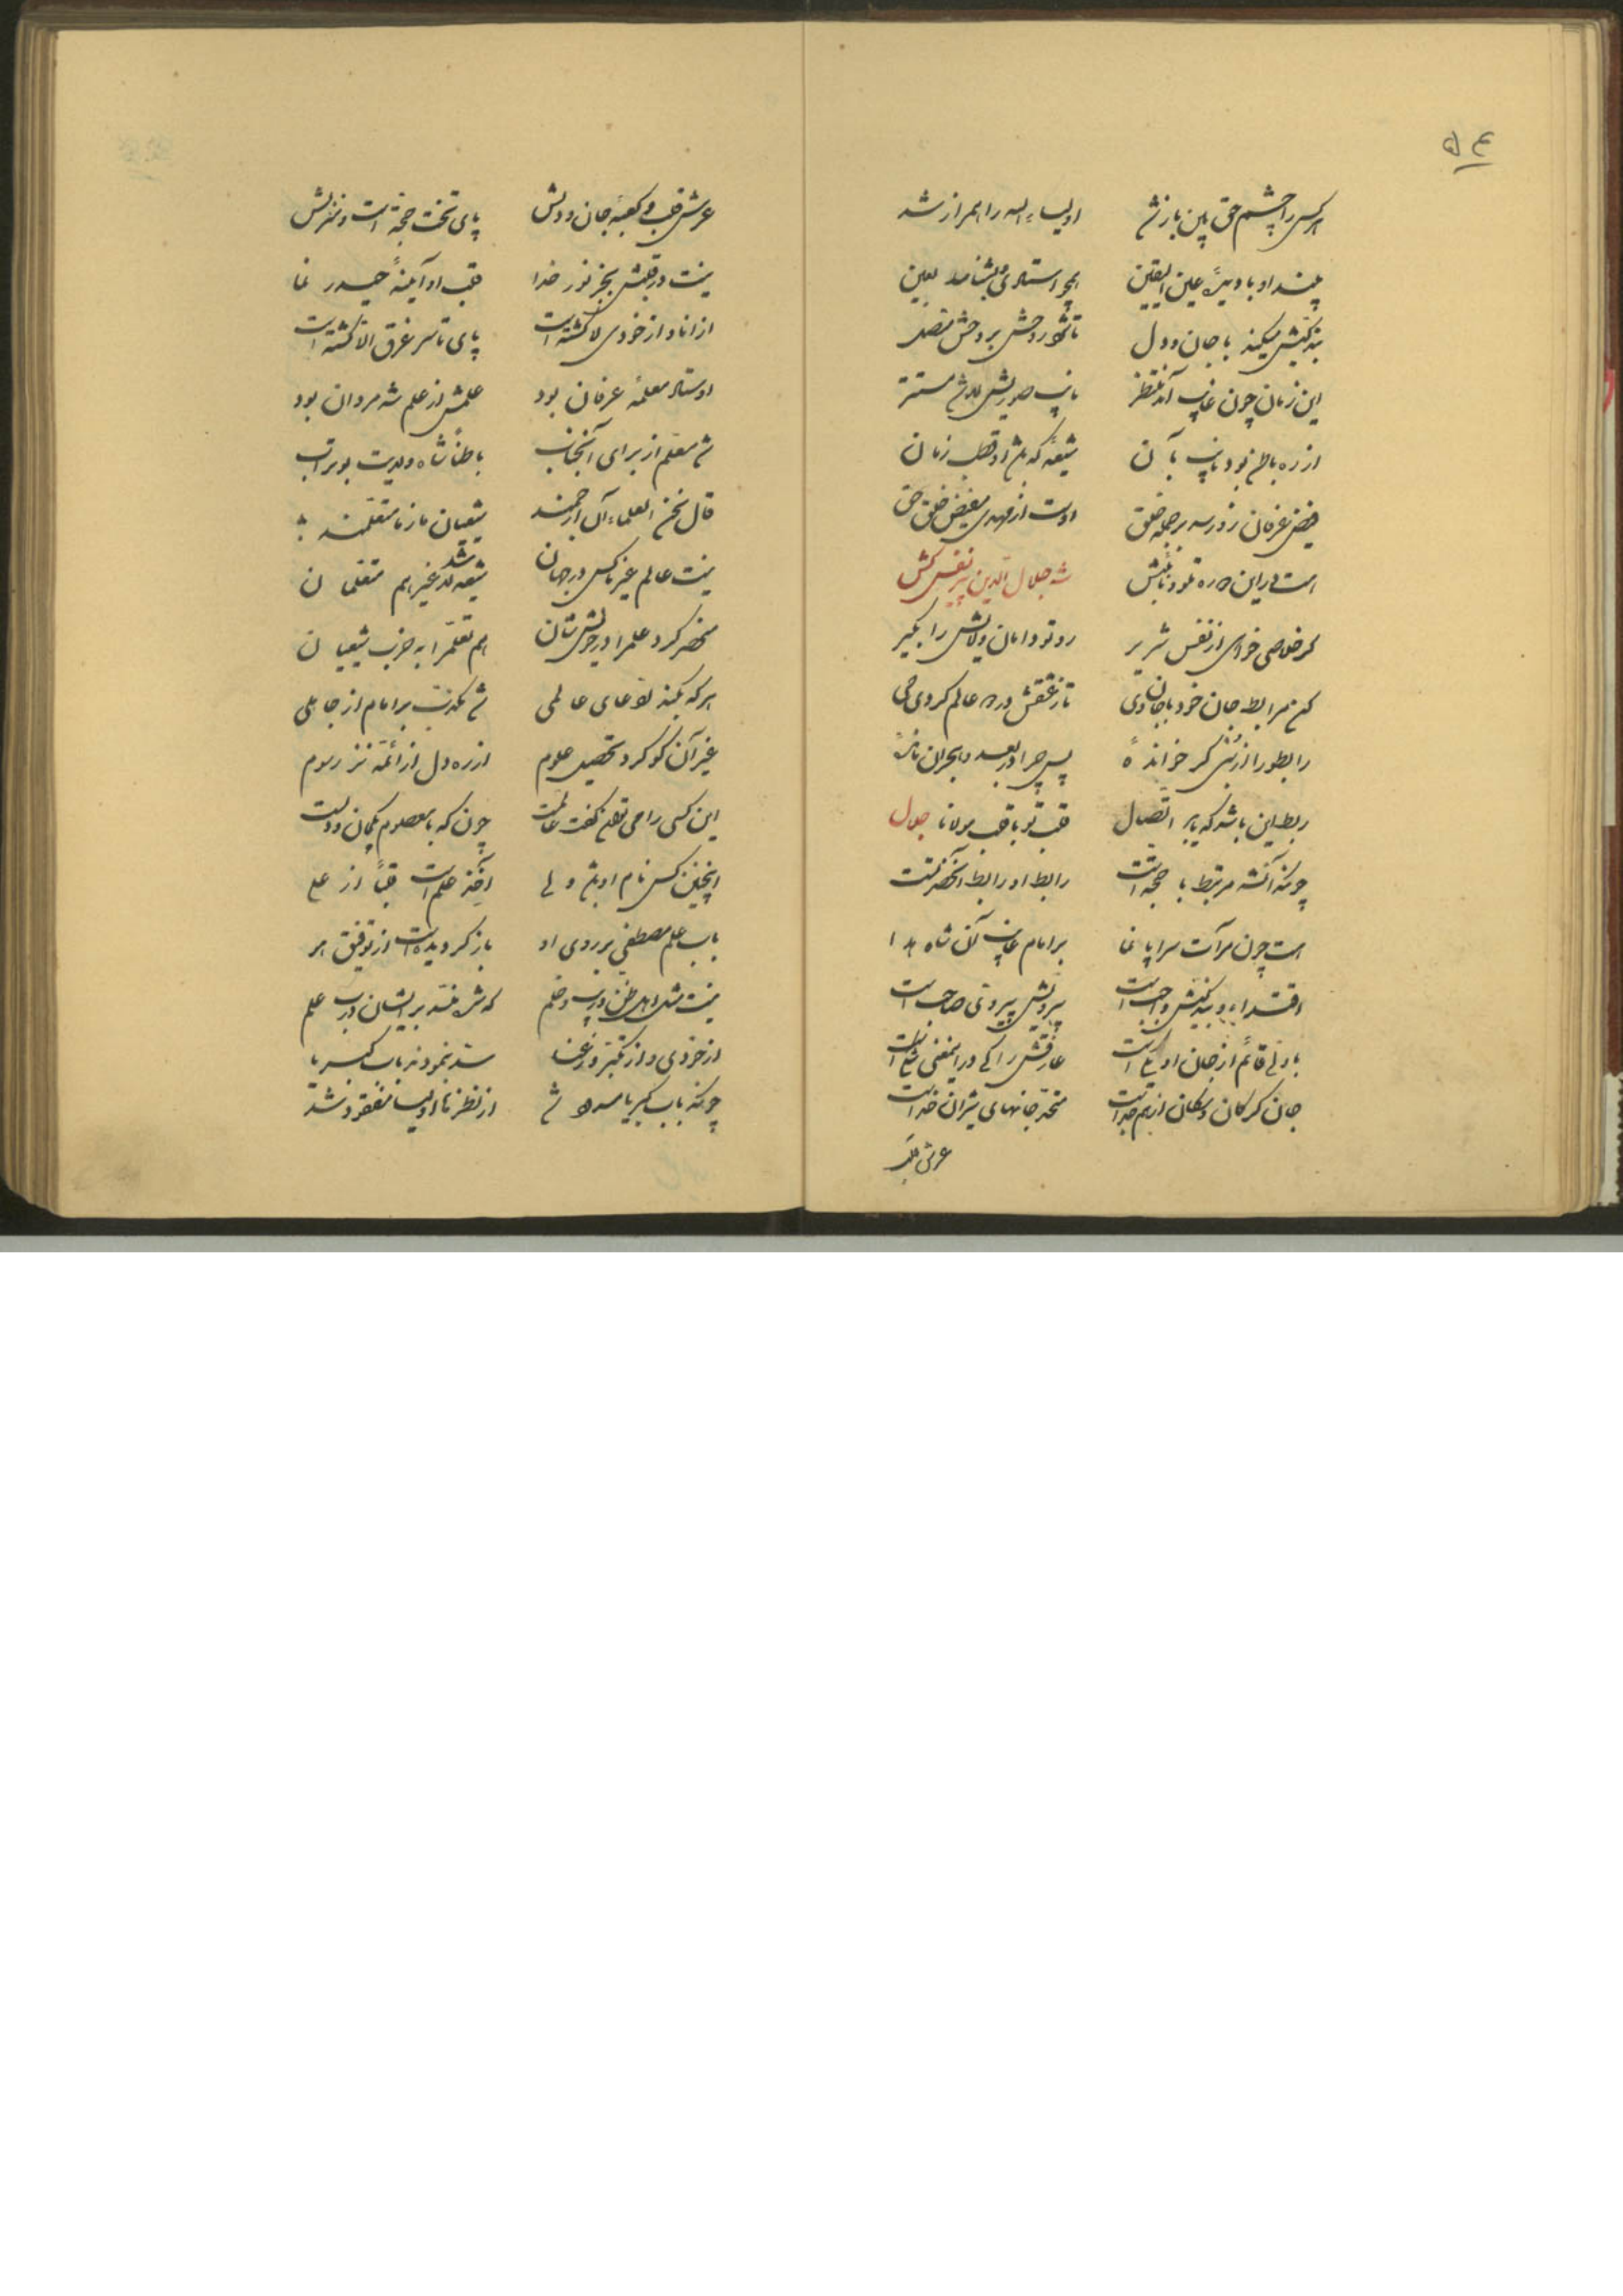 ۵۴
هر کس را چشم حق بین باز شد اولیاء الله را همراز شد
بیند او با دیدهٔ عین الیقین همچو استادی بشناسد یعین
بندگیش میکند با جان و دل تا شود روحش بروحش متصل
این زمان چون غایب آن منتظر نایب صوریش هم شد مستتر
از ره باطن بود نایب بآن شیعهٔ که باشد او قطب زمان
فیض عرفان زو رسد بر جمله خلق اوست از مهدی مفیض خلق حق
هست در این دوره شه جلال الدین پیر نفس کش
گر خلاصی خواهی از نفس شریر رو تو دامان ولایش را بگیر
کن مرابط جان خود با جان وی تا ز عشقش در دو عالم گردی حی
رابطو را از نبی گر خوانده پس چرا در بعد و هجران مانده
ربط این باشد که یابد اتصال قلب تو با قلب مولانا جلال
چونکه آنشه مرتبط با حجة است رابط او رابط آنحضرتست
هست چون مرآت سراپا نما بر امام غایب آن شاه هدا
اقتداء و بندگیش واجب است پیرویش پیروی صاحب است
با ولی قائم از جان
جان گرگان و سگان از هم جداست متحد جانهای شیران خداست
عرش قلب
عرش قلب و کعبهٔ جان و دلش پای تخت حجة است و منزلش
نیست در قلبش بجز نور خدا قلب او آیینهٔ حیدر نما
از انا و از خودی لا گشته است پای تا سر غرق الا گشته است
اوستاد معلم عرفان بود علمش از علم شه مردان بود
شد معلم از برای آنجناب باطناً شاه ولایت بوتراب
قال نحن العلماء آل ارجمند شیعیان ما ز ما متعلمند
نیست عالم غیر ما کس در جهان شیعه شد غیر هم متعلمان
منحصر کرد علم را در خویش شان هم تعلم را به حزب شیعیان
هر که بکند ادعای عالمی شد مکذب بر امام از جاهلی
غیر آن کو کرد تحصیل علوم از ره دل از ائمه نز رسوم
این کسی را می توان گفت عالمست چون که با معصوم یکجان و دلست
اینچنین کس نام او باشد ولی اخذ علم است قلباً از علی
باب علم مصطفی بر روی او باز گردیده است از توفیق هو
نیست مثل اهل ظن و ریب و ظلم که شده بسته بر ایشان درب علم
از خودی و از تکبر وز عنا سد نمودند باب کبریا
چونکه باب کبریا مسدود شد از نظرها اولیا مفقود شد